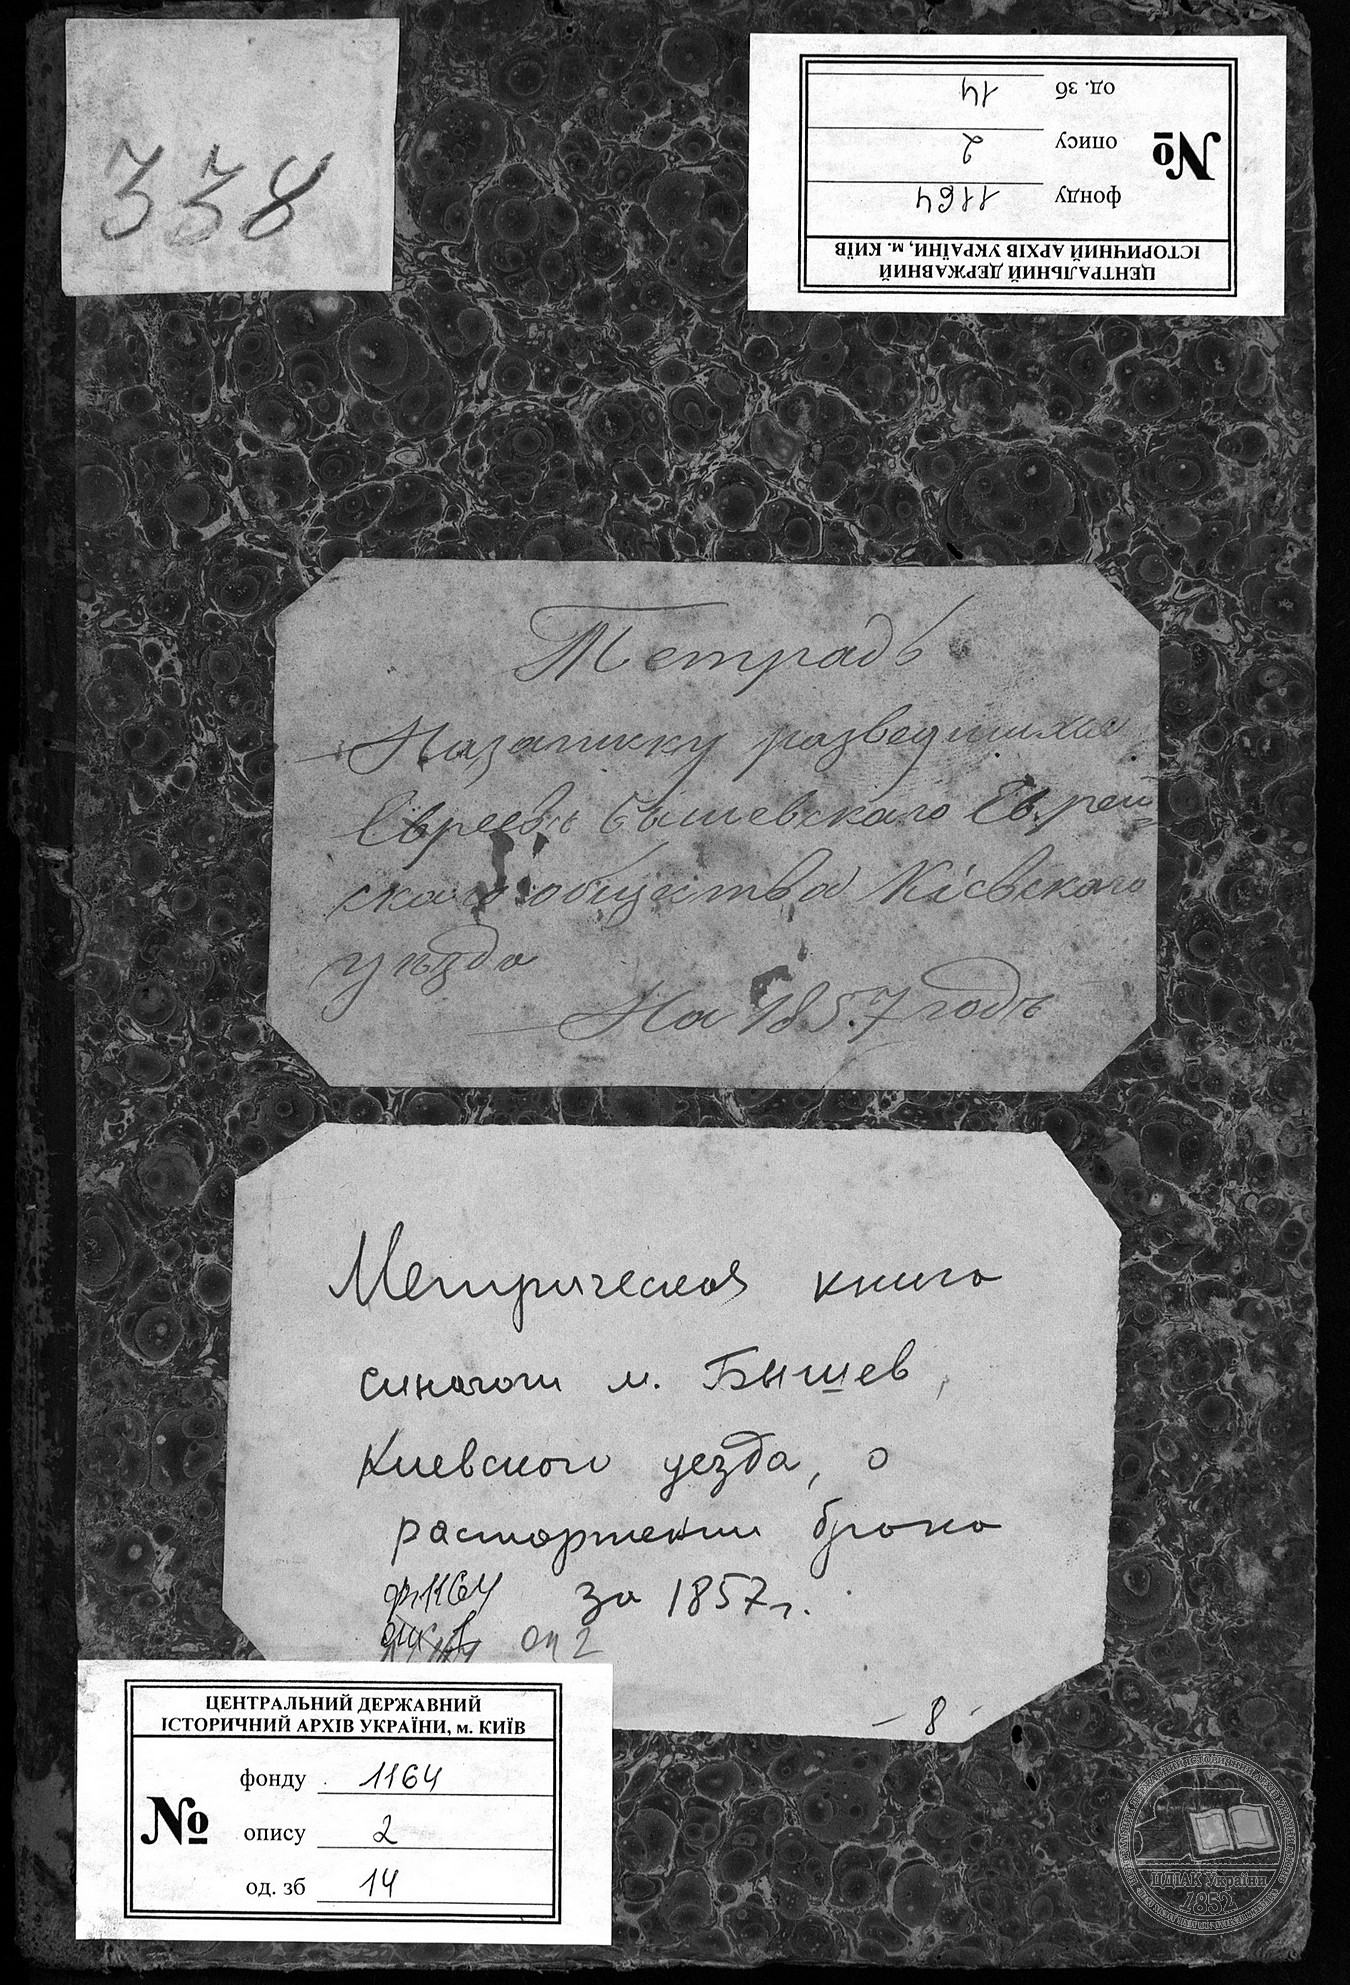 338
ЦЕНТРАЛЬНИЙ ДЕРЖАВНИЙ
ІСТОРИЧНИЙ АРХІВ УКРАЇНИ, м. КИЇВ
№
фонду 1164
опису 2
од. зб 14
Тетрадь
Назаписку разведшихся
Евреевъ Бышевскаго Еврей-
скаго общества Кіевскаго
уѣзда
На 1857 годъ
Метрическая книга
синагоги м. Бышев,
Киевского уезда, о
расторжении брака
ф 1164 за 1857 г.
оп 2
- 8 -
ЦЕНТРАЛЬНИЙ ДЕРЖАВНИЙ
ІСТОРИЧНИЙ АРХІВ УКРАЇНИ, м. КИЇВ
№
фонду 1164
опису 2
од. зб 14
ЦДІАК України
1852